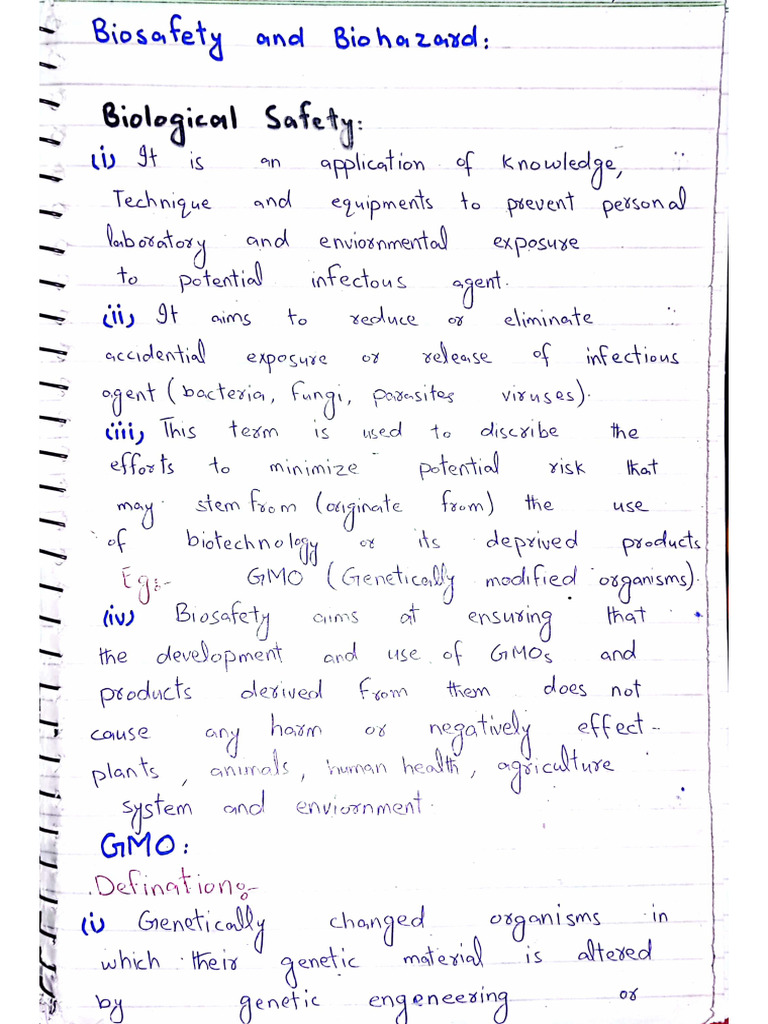 Biosafety and Biohazard:
Biological Safety:
(i) It is an application of knowledge,
Technique and equipments to prevent personal
laboratory and enviornmental exposure
to potential infectous agent.
(ii) It aims to reduce or eliminate
accidential exposure or release of infectious
agent (bacteria, fungi, parasites viruses).
(iii) This term is used to discribe the
efforts to minimize potential risk that
may stem from (originate from) the use
of biotechnology or its deprived products
Eg:- GMO (Genetically modified organisms).
(iv) Biosafety aims at ensuring that
the development and use of GMOs and
products derived from them does not
cause any harm or negatively effect
plants, animals, human health, agriculture
system and enviornment.
GMO:
Defination:-
(i) Genetically changed organisms in
which their genetic material is altered
by genetic engeneering or